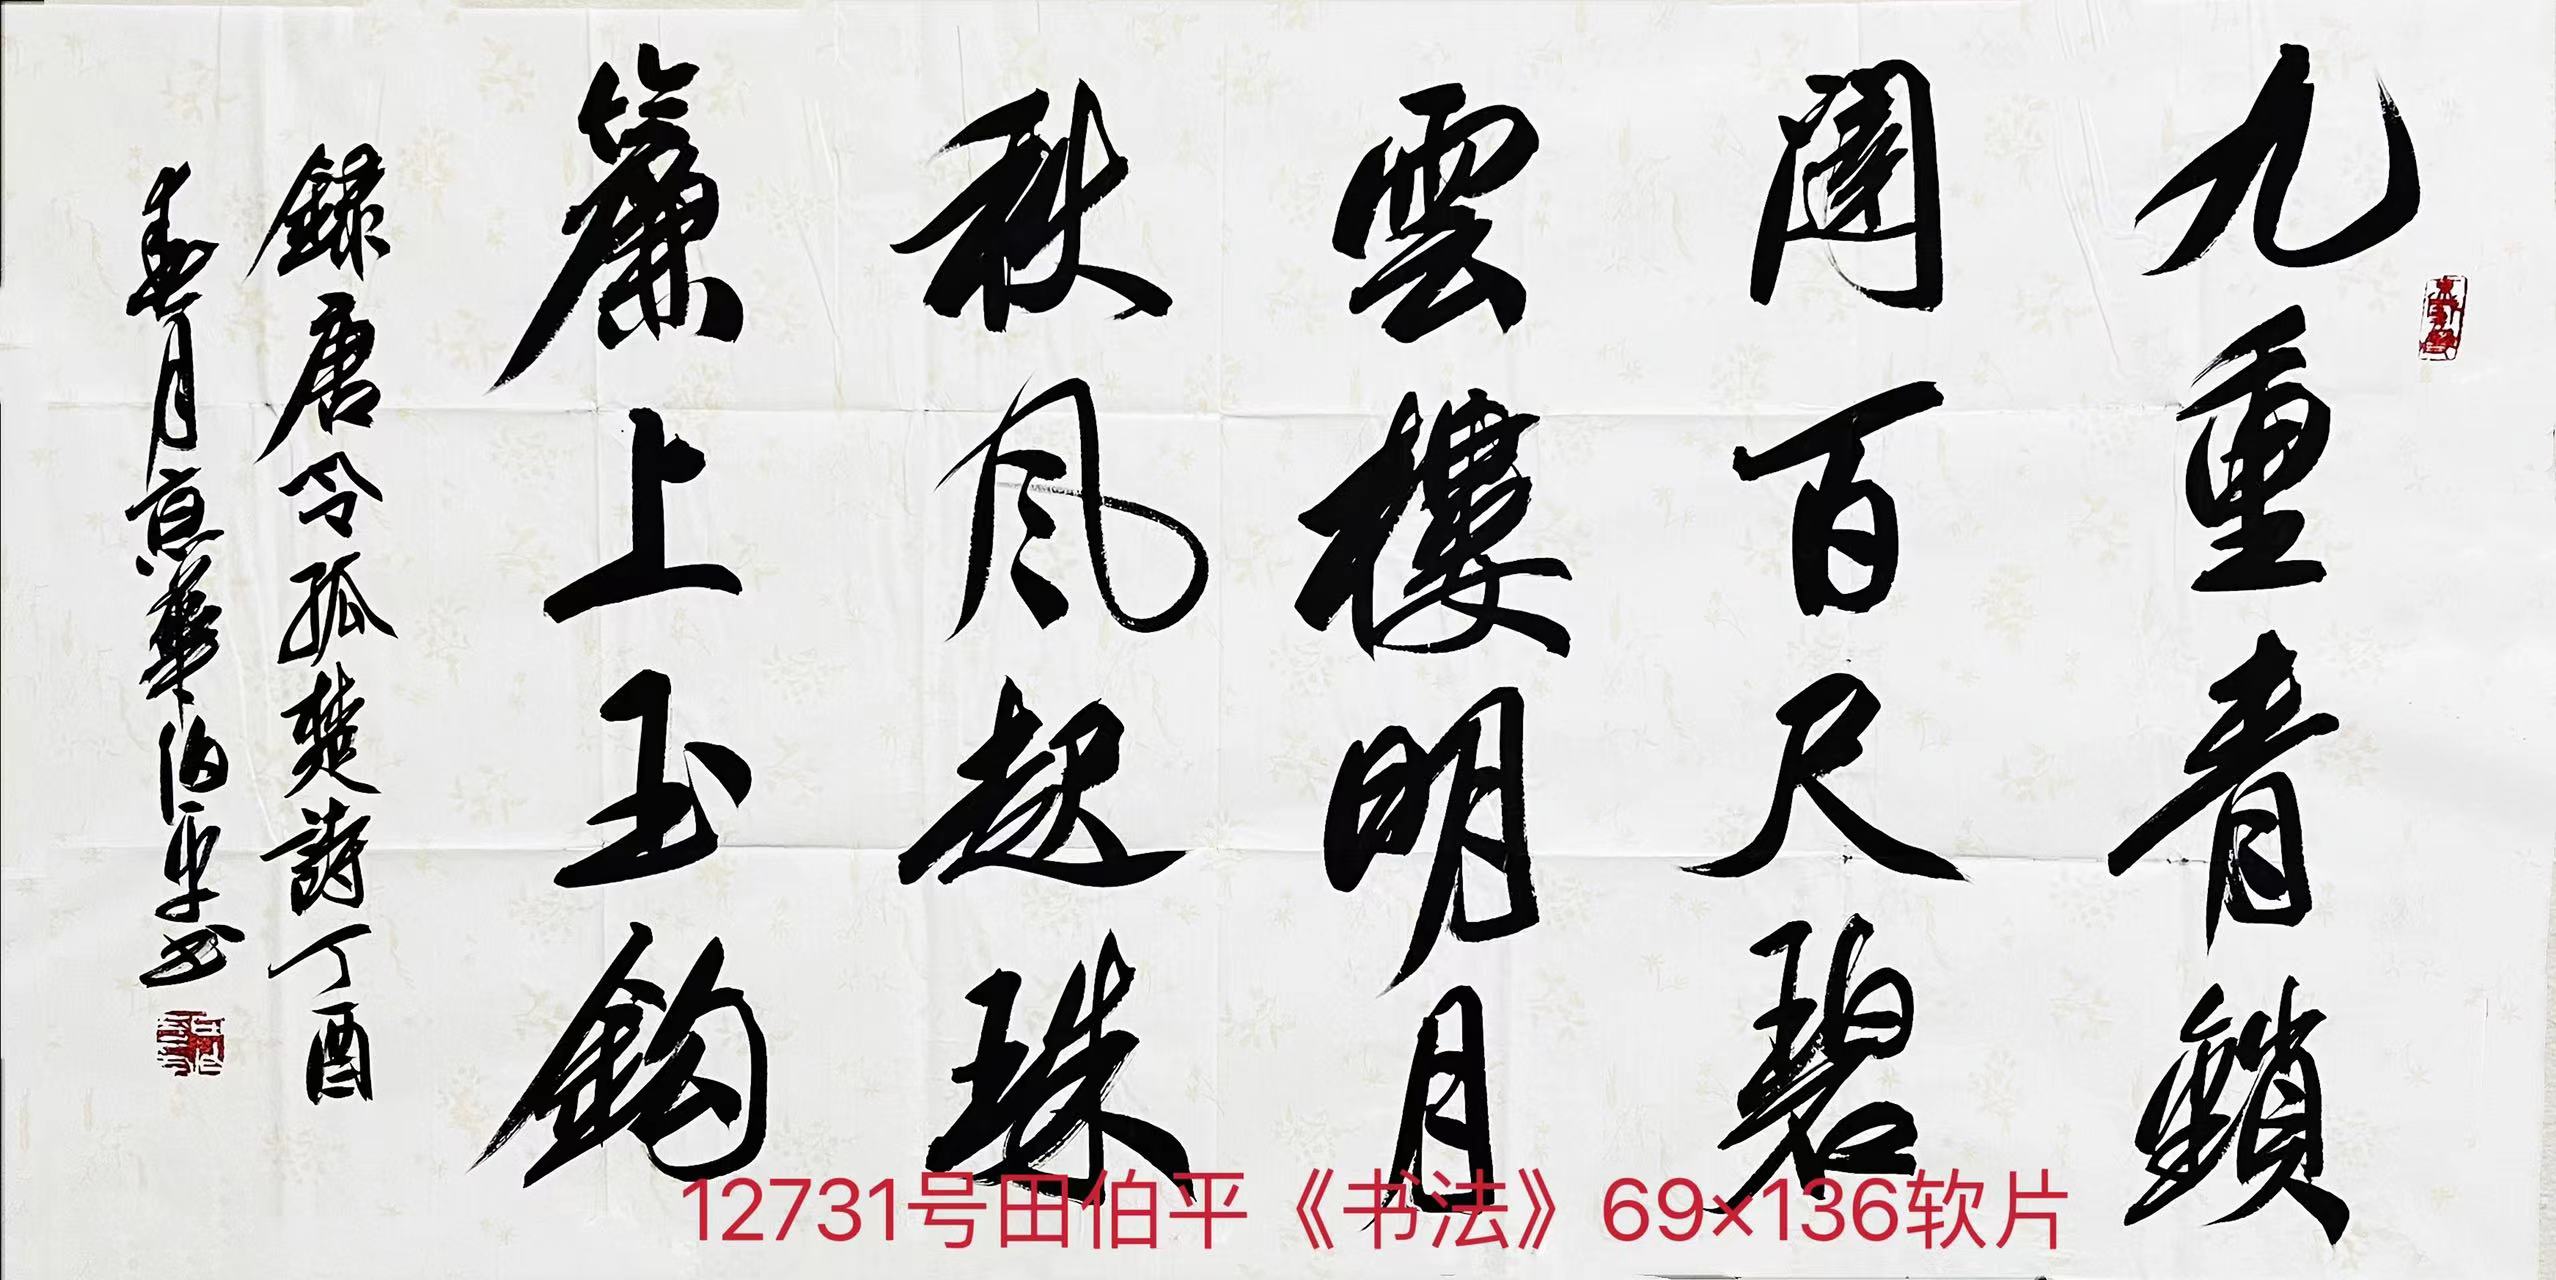 九重青鎖
闈百尺碧
雲樓明月
秋風起珠
簾上玉鈎
錄唐令狐楚詩丁酉
春月京華伯平书
12731号田伯平《书法》69×136软片